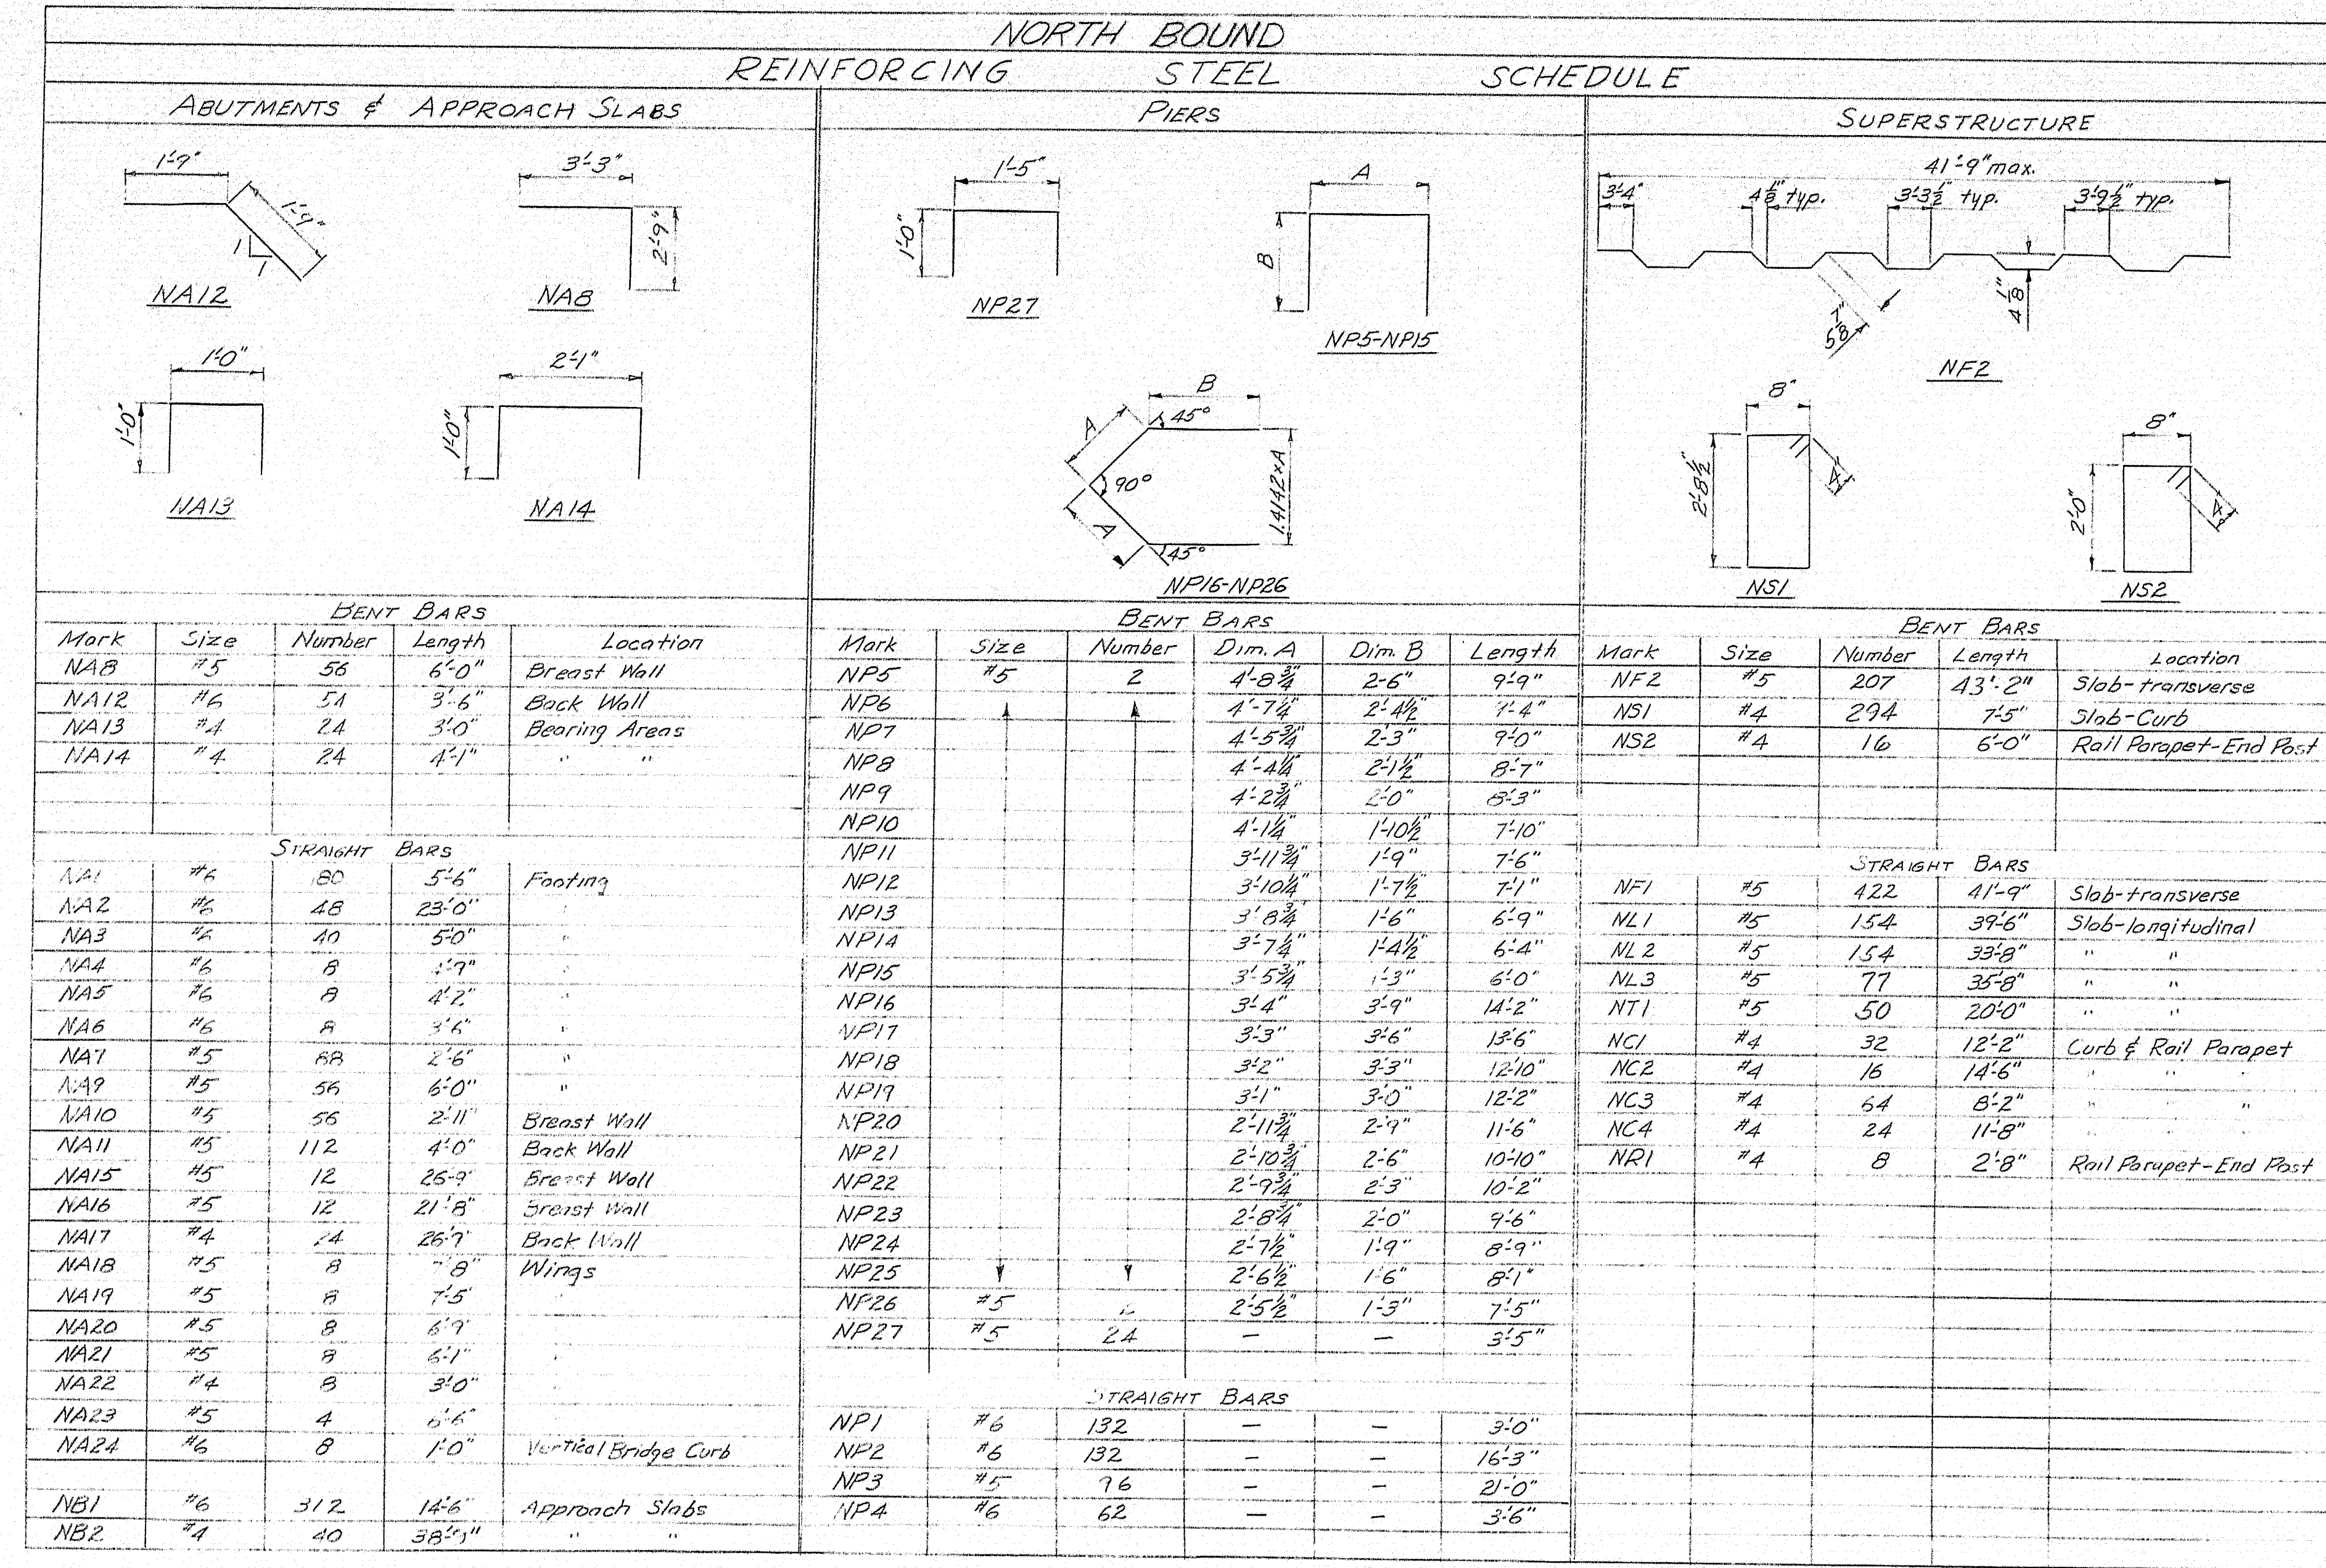 NORTH BOUND
REINFORCING STEEL SCHEDULE
ABUTMENTS & APPROACH SLABS
1'-9"
1'-9"
1
1
NA12
3'-3"
2'-9"
NA8
1'-0"
1'-0"
NA13
2'-1"
1'-0"
NA14
BENT BARS
Mark Size Number Length Location
NA8 #5 56 6'-0" Breast Wall
NA12 #6 54 3'-6" Back Wall
NA13 #4 24 3'-0" Bearing Areas
NA14 #4 24 4'-1" " "
STRAIGHT BARS
NA1 #6 80 5'-6" Footing
NA2 #6 48 23'-0" "
NA3 #6 40 5'-0" "
NA4 #6 8 "
NA5 #6 8 4'-2" "
NA6 #6 8 3'-6" "
NA7 #5 88 2'-6" "
NA9 #5 56 6'-0" "
NA10 #5 56 2'-11" Breast Wall
NA11 #5 112 4'-0" Back Wall
NA15 #5 12 26'-9" Breast Wall
NA16 #5 12 21'-8" Breast Wall
NA17 #4 24 26'-9" Back Wall
NA18 #5 8 7'-8" Wings
NA19 #5 8 7'-5"
NA20 #5 8 6'-9"
NA21 #5 8 6'-1"
NA22 #4 8 3'-0"
NA23 #5 4 6'-6"
NA24 #6 8 1'-0" Vertical Bridge Curb
NB1 #6 312 14'-6" Approach Slabs
NB2 #4 40 " "
PIERS
1'-5"
1'-0"
NP27
A
B
NP5-NP15
B
A
45°
90°
1.4142×A
A
45°
NP16-NP26
BENT BARS
Mark Size Number Dim. A Dim. B Length
NP5 #5 2 4'-8 3/4" 2'-6" 9'-9"
NP6 4'-7 1/4" 2'-4 1/2" 9'-4"
NP7 4'-5 3/4" 2'-3" 9'-0"
NP8 4'-4 1/4" 2'-1 1/2" 8'-7"
NP9 4'-2 3/4" 2'-0" 8'-3"
NP10 4'-1 1/4" 1'-10 1/2" 7'-10"
NP11 3'-11 3/4" 1'-9" 7'-6"
NP12 3'-10 1/4" 1'-7 1/2" 7'-1"
NP13 3'-8 3/4" 1'-6" 6'-9"
NP14 3'-7 1/4" 1'-4 1/2" 6'-4"
NP15 3'-5 3/4" 1'-3" 6'-0"
NP16 3'-4" 3'-9" 14'-2"
NP17 3'-3" 3'-6" 13'-6"
NP18 3'-2" 3'-3" 12'-10"
NP19 3'-1" 3'-0" 12'-2"
NP20 2'-11 3/4" 2'-9" 11'-6"
NP21 2'-10 3/4" 2'-6" 10'-10"
NP22 2'-9 3/4" 2'-3" 10'-2"
NP23 2'-8 3/4" 2'-0" 9'-6"
NP24 2'-7 1/2" 1'-9" 8'-9"
NP25 2'-6 1/2" 1'-6" 8'-1"
NP26 #5 2'-5 1/2" 1'-3" 7'-5"
NP27 #5 24 — — 3'-5"
STRAIGHT BARS
NP1 #6 132 — — 3'-0"
NP2 #6 132 — — 16'-3"
NP3 #5 96 — — 21'-0"
NP4 #6 62 — — 3'-6"
SUPERSTRUCTURE
41'-9" max.
3'-4" 4 1/8" typ. 3'-3 1/2" typ. 3'-9 1/2" typ.
5 7/8"
4 1/8"
NF2
8"
2'-8 1/2"
4"
NS1
8"
2'-0"
4"
NS2
BENT BARS
Mark Size Number Length Location
NF2 #5 207 43'-2" Slab-transverse
NS1 #4 294 7'-5" Slab-Curb
NS2 #4 16 6'-0" Rail Parapet-End Post
STRAIGHT BARS
NF1 #5 422 41'-9" Slab-transverse
NL1 #5 154 39'-6" Slab-longitudinal
NL2 #5 154 33'-8" " "
NL3 #5 77 35'-8" " "
NT1 #5 50 20'-0" " "
NC1 #4 32 12'-2" Curb & Rail Parapet
NC2 #4 16 14'-6" " " "
NC3 #4 64 8'-2" " " "
NC4 #4 24 11'-8" " " "
NR1 #4 8 2'-8" Rail Parapet-End Post